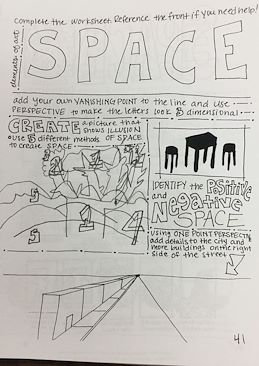 Complete the Worksheet Reference the front if you need help!
elements of art
SPACE
add your own VANISHING POINT to the line and use
PERSPECTIVE to make the letters look 3 dimensional
CREATE a picture that
shows ILLUSION
use 5 different methods OF SPACE
to create SPACE
IDENTIFY the Positive
and
Negative
SPACE
using ONE POINT PERSPECTIVE
add details to the city and
more buildings on the right
side of the street
41